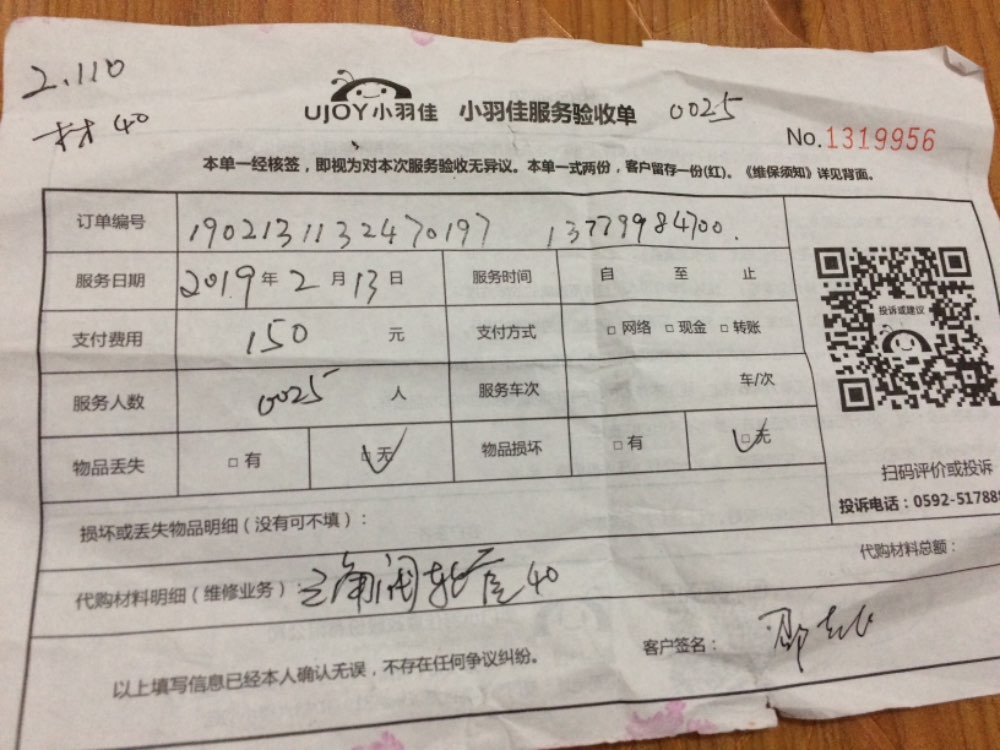 2.110
材 40
UJOY小羽佳 小羽佳服务验收单 0025
No.1319956
本单一经核签，即视为对本次服务验收无异议。本单一式两份，客户留存一份(红)。《维保须知》详见背面。
订单编号 1902131132470197 13779984700.
服务日期 2019年2月13日 服务时间 自 至 止
支付费用 150 元 支付方式 □ 网络 □ 现金 □ 转账
投诉或建议
服务人数 0025 人 服务车次 车/次
物品丢失 □ 有 □ 无 物品损坏 □ 有 □ 无
扫码评价或投诉
投诉电话：0592-51788
损坏或丢失物品明细（没有可不填）：
代购材料总额：
代购材料明细（维修业务）：三角阀软管40
客户签名：
以上填写信息已经本人确认无误，不存在任何争议纠纷。